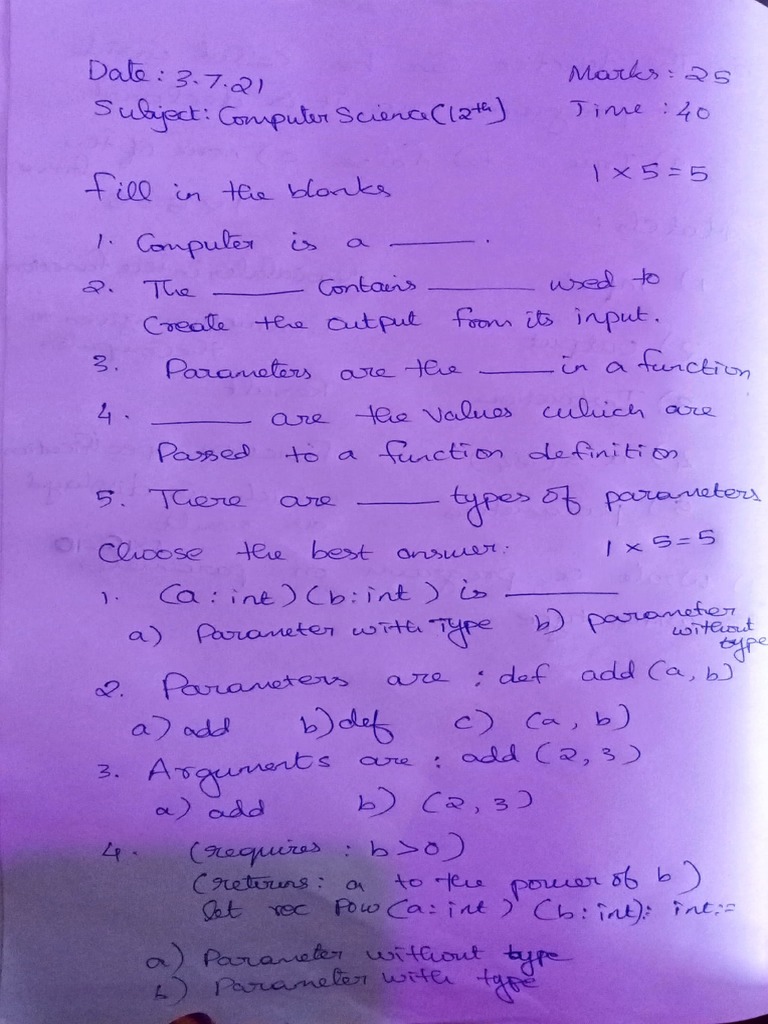 Date: 3.7.21 Marks: 25
Subject: Computer Science (12th) Time: 40
Fill in the blanks 1 x 5 = 5
1. Computer is a ______.
2. The ______ Contains ______ used to
Create the output from its input.
3. Parameters are the ______ in a function
4. ______ are the values which are
Passed to a function definition
5. There are ______ types of parameters
Choose the best answer: 1 x 5 = 5
1. (a: int) (b: int) is ______
a) Parameter with Type b) parameter without type
2. Parameters are : def add (a, b)
a) add b) def c) (a, b)
3. Arguments are : add (2, 3)
a) add b) (2, 3)
4. (requires : b > 0)
(returns: a to the power of b)
let rec Pow (a: int) (b: int): int:=
a) Parameter without type
b) Parameter with type